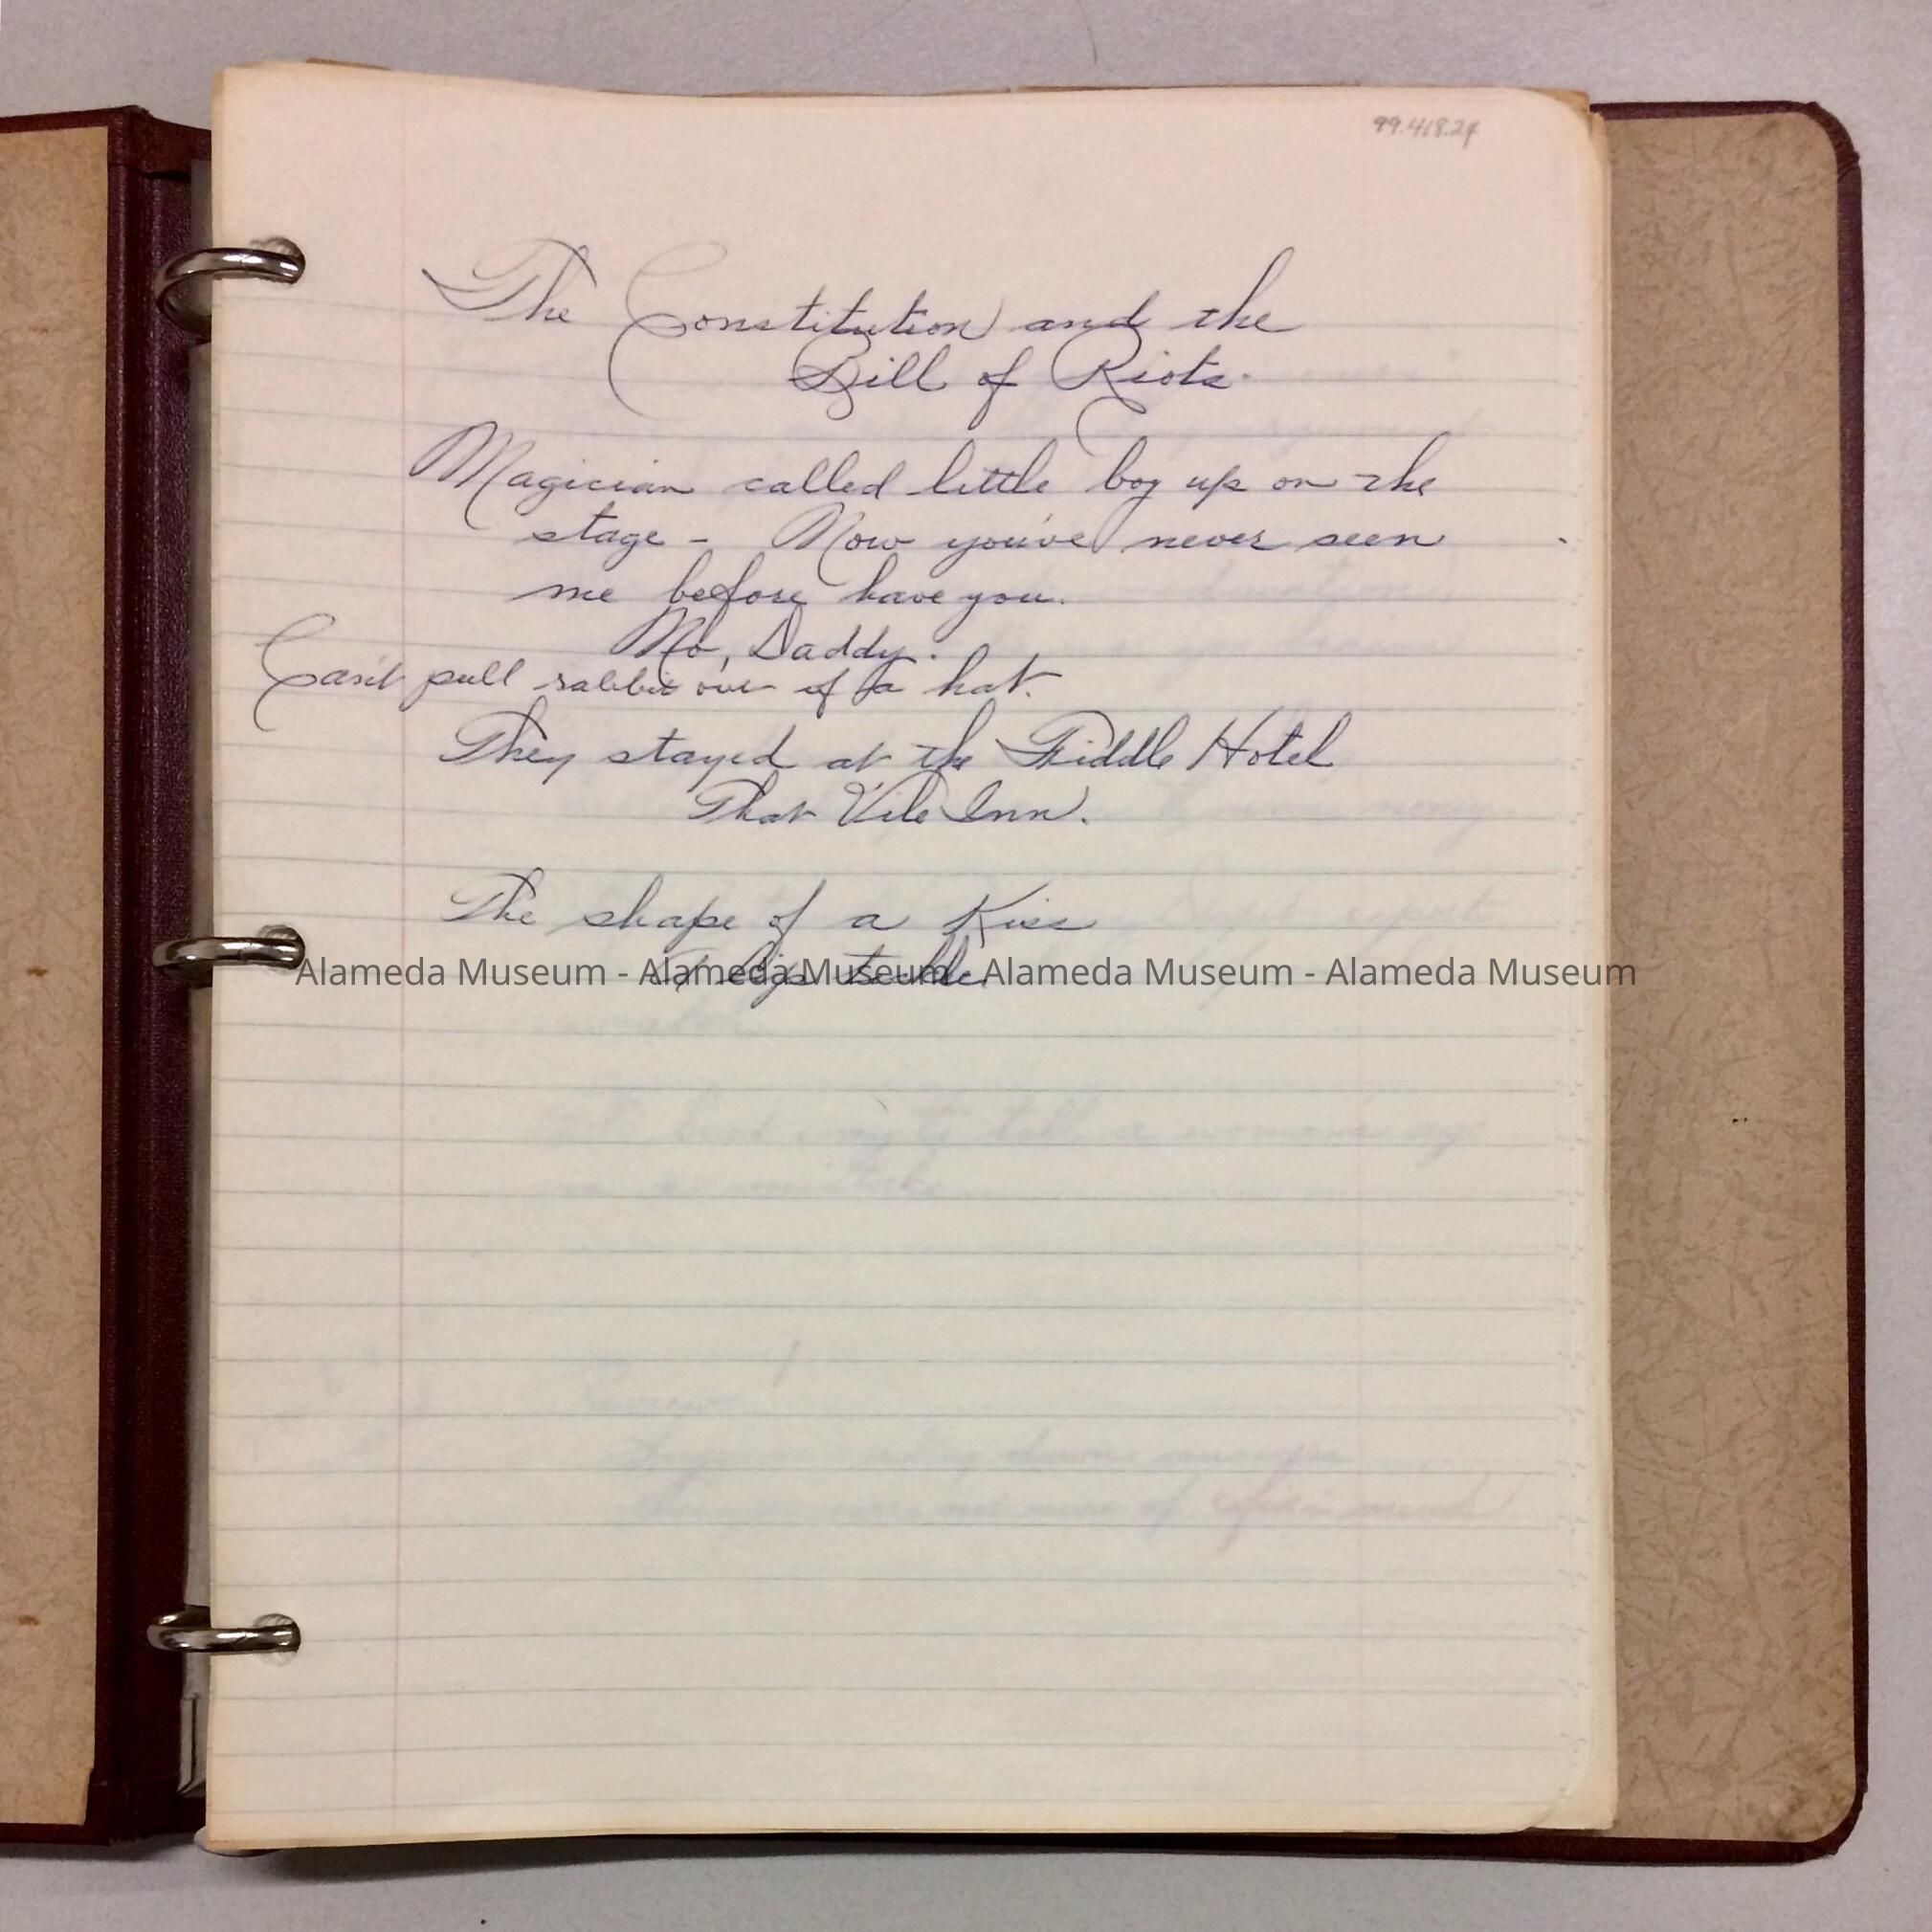 99.418.24
The Constitution and the
Bill of Riots.
Magician called little boy up on the
stage - Now you've never seen
me before have you.
No, Daddy.
Can't pull rabbit out of a hat.
They stayed at the Fiddle Hotel
That Vile Inn.
The shape of a Kiss
Alameda Museum - Alameda Museum - Alameda Museum - Alameda Museum